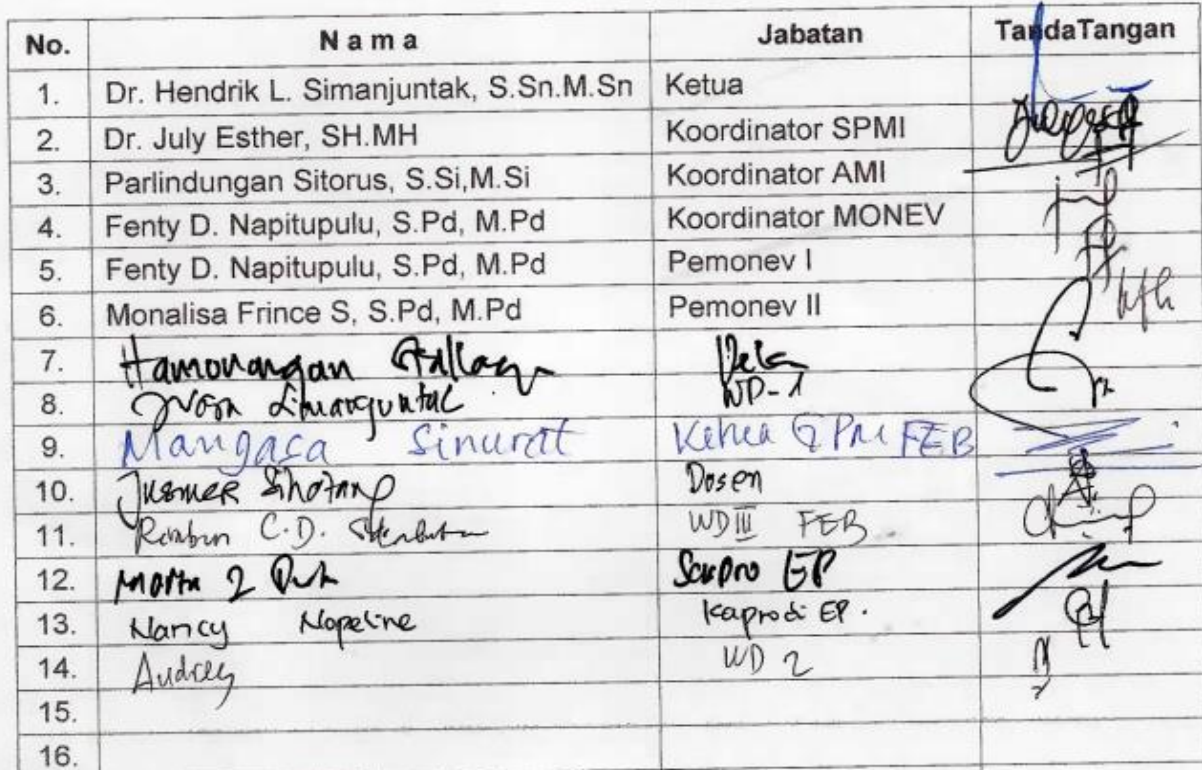 No. N a m a Jabatan TandaTangan
1. Dr. Hendrik L. Simanjuntak, S.Sn.M.Sn Ketua
2. Dr. July Esther, SH.MH Koordinator SPMI
3. Parlindungan Sitorus, S.Si,M.Si Koordinator AMI
4. Fenty D. Napitupulu, S.Pd, M.Pd Koordinator MONEV
5. Fenty D. Napitupulu, S.Pd, M.Pd Pemonev I
6. Monalisa Frince S, S.Pd, M.Pd Pemonev II
7. Hamonangan
8. WD-1
9. Mangasa Sinurat Ketua GPM FEB
10. Jusmer Sihotang Dosen
11. C.D. WD III FEB
12. EP
13. Nancy Nopeline Kaprodi EP.
14. Audrey WD 2
15.
16.